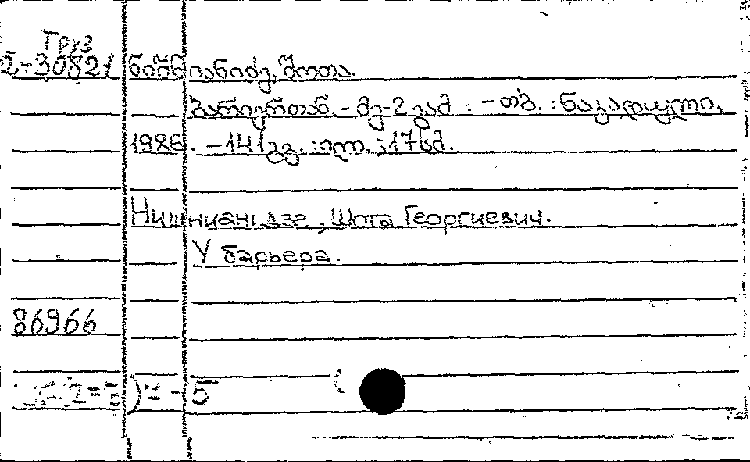 Груз
2-30821 ნიშნიანიძე, შოთა.
ბარიერთან. - მე-2 გამ. - თბ.: ნაკადული,
1986. - 141 გვ.: ილ.; 17 სმ.
Нишнианидзе, Шота Георгиевич.
У барьера.
86966